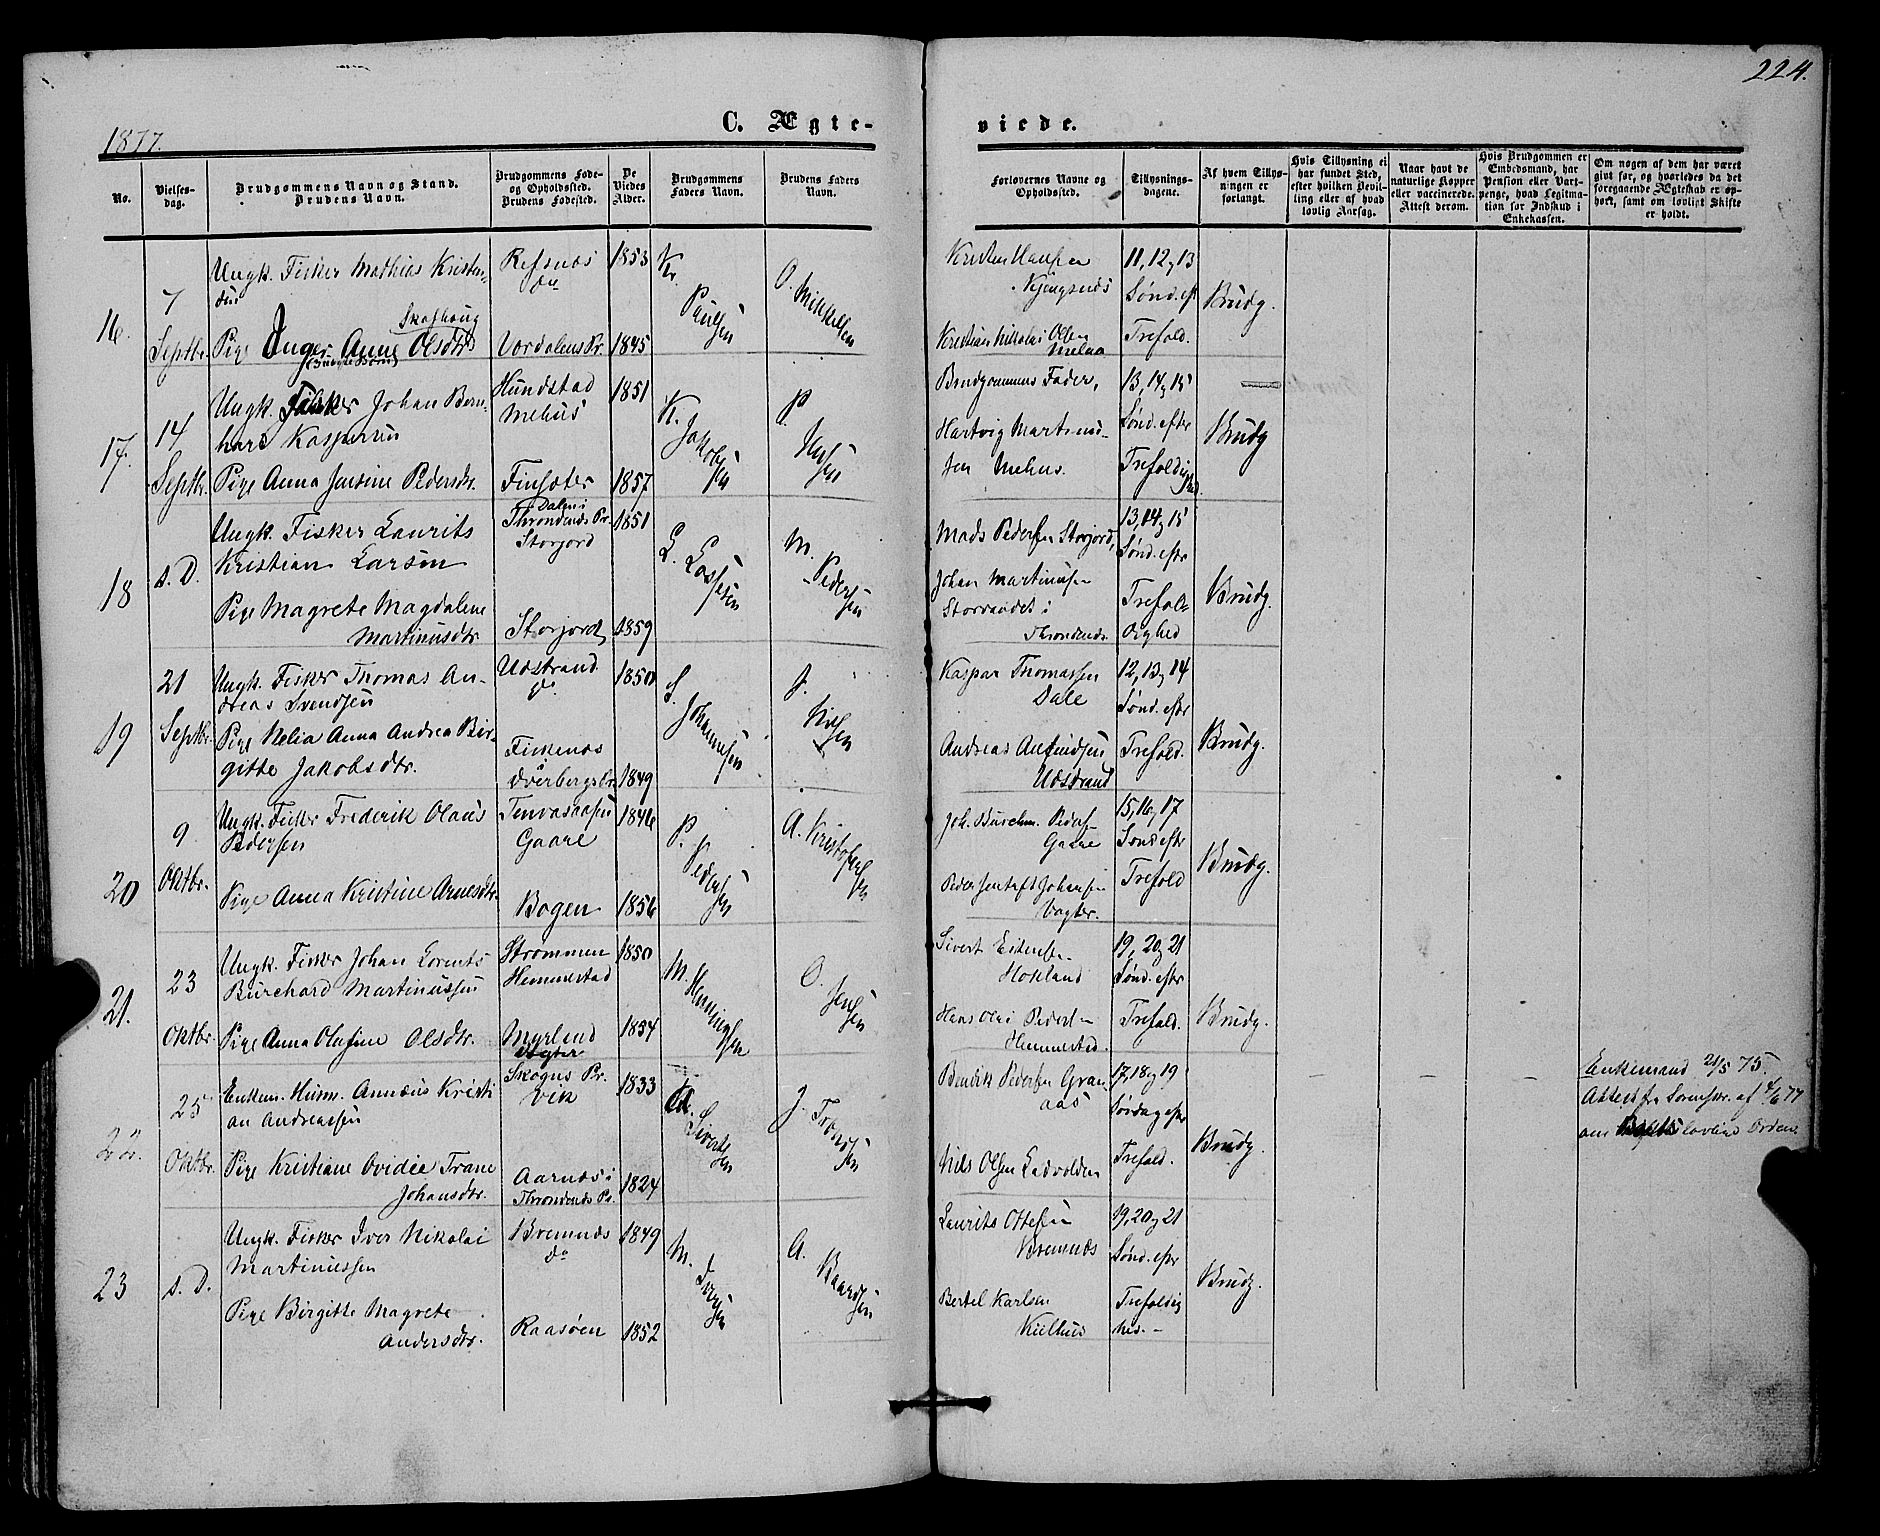 224.
1877.
C. Ægte-
viede.
No.
Vielses-
dag.
Brudgommens Navn og Stand.
Brudens Navn.
Brudgommens Føde-
og Opholdssted.
Brudens Fødested.
De
Viedes
Alder.
Brudgommens
Faders Navn.
Brudens Faders
Navn.
Forlovernes Navne og
Opholdssted.
Tillysnings-
dagene.
Af hvem Tillys-
ningen er
forlangt.
Hvis Tillysning ei
har fundet Sted,
efter hvilken Bevil-
ling eller af hvad
lovlig Aarsag.
Naar havt de
naturlige Kopper
eller vaccinerede.
Attest derom.
Hvis Brudgommen er
Embedsmand, har
Pension eller Vart-
penge, hvad Legitima-
tion for Indskud i
Enkekassen.
Om nogen af dem har været
gift før, og hvorledes da det
foregaaende Ægteskab er op-
hørt, samt om lovligt Skifte
er holdt.
16.
7
Septbr.
Ungk. Fisker Mathias Kristen-
sen
Skafhaug
Pige Inger Anne Olsdtr.
Refsnæs
do
Vordalens Pr.
1853
1845
Kr.
Paulsen
O. Mikkelsen
Kristen Hansen
Kjengsnæs
Kristian Nikolai Olsen
Melaa
11, 12 og 13
Sønd. eft
Trefold.
Brudg.
17.
14
Septbr.
Ungk. Fisker Johan Bern-
hard Kaspersen
Pige Anna Jensine Pedersdtr.
Hundstad
Mehus
Finsæter
1851
1857
K.
Jakobsen
P.
Brudgommens Fader,
Hartvig Martinus-
sen Mehus.
13, 14 og 15
Sønd. efter
Brudg
18
s. D.
Ungk. Fisker Laurits
Kristian Larsen
Pige Magrete Magdalene
Martinusdtr.
Dalen i
Throndenæs Pr.
Storjord
Storjord
1851
1859
L. Lassesen
M.
Pedersen
Mads Pedersen Storjord,
Johan Martinusen
Storvandet i
Throndenæs
13, 14 og 15
Sønd. efter
Brudg.
19
21
Septbr.
Ungk. Fisker Thomas An-
dreas Svendsen
Pige Nelia Anna Andrea Bir-
gitte Jakobsdtr.
Udstrand
do.
Fiskenæs
Dverbergs Pr.
1850
1849
S.
Johannesen
J.
Nilsen
Kaspar Thomassen
Dale
Andreas Amundsen
Udstrand
12, 13 og 14
Sønd. efter
Trefold.
Brudg.
20
9
Oktbr.
Ungk. Fisker Frederik Olaus
Pedersen
Pige Anna Kristine Arnesdtr.
Gaare
Bogen
1846
1856
P.
Pedersen
A. Kristofersen
Joh. Burchm. Peders-
Gaare
Peder Jentoft Johansen
Vagter.
15, 16, 17
Sønd. efter
Trefold
Brudg.
21.
23
Oktbr.
Ungk. Fisker Johan Lorents
Burchard Martinussen
Pige Anna Olufine Olsdtr.
Strømmen
Hemmestad
Myrlend
1850
1854
M.
Henningsen
O.
Jensen
Sivert Estensen
Hokland
Hans Olai Peders-
Hemmestad.
19, 20 og 21
Sønd. efter
Trefold.
Brudg.
22.
25
Oktbr.
Enkem. Husm. Annæus Kristi
an Andreassen
Pige Kristiane Ovidie Trane
Johansdtr.
Skogns Pr.
Vik
Aarnæs i
Throndenæs Pr.
1833
1824
Sivertsen
J. Trondsen
Bendik Pedersen Gran-
aas
Nils Olsen Ladvolden
17, 18 og 19
Søndag efter
Trefold.
Brudg.
Enkemand 21/5 75.
Attest fra Sorenskr. af 4/6 77
om lovlig Orden.
23
s. D.
Ungk. Fisker Iver Nikolai
Martinussen
Pige Birgitte Magrete
Andersdtr.
Bremnæs
do
Raasøen
1849
1852
M.
Iversen
A.
Baardsen
Laurits Ottesen
Bremnæs
Bertel Karlsen
Kulhus
19, 20 og 21
Sønd. efter
Trefoldig
hed. -
Brudg.